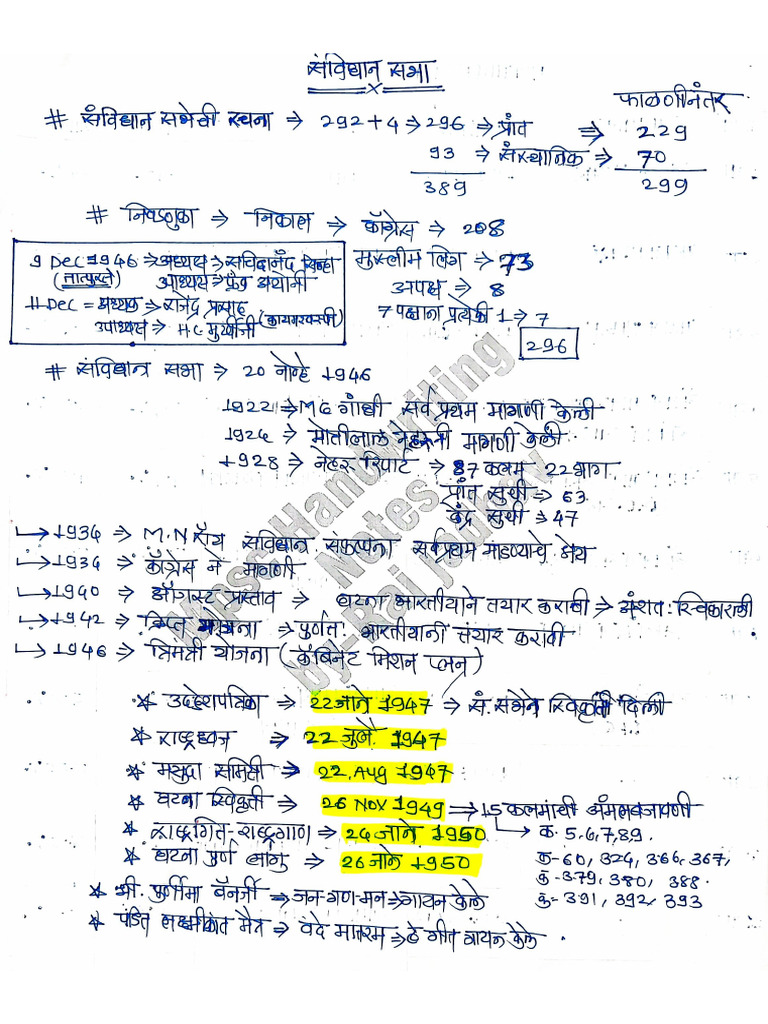 संविधान सभा
फाळणीनंतर
# संविधान सभेची रचना ⇒ 292+4 ⇒ 296 ⇒ प्रांत ⇒ 229
93 ⇒ संस्थानिक ⇒ 70
389 299
# निवडणुका ⇒ निकाल ⇒ काँग्रेस ⇒ 208
मुस्लीम लिग ⇒ 73
अपक्ष ⇒ 8
7 पक्षाना प्रत्येकी 1 ⇒ 7
296
9 Dec 1946 ⇒ अध्यक्ष ⇒ सचिदानंद सिन्हा
(तात्पुरते) उपाध्यक्ष ⇒ फ्रँक
11 Dec = अध्यक्ष ⇒ राजेंद्र प्रसाद
उपाध्यक्ष ⇒ HC मुखर्जी (कायमस्वरूपी)
# संविधान सभा ⇒ 20 नोव्हे 1946
1922 ⇒ MG गांधी सर्व प्रथम मागणी केली
1924 ⇒ मोतीलाल नेहरूनी मागणी केली
1928 ⇒ नेहरू रिपोर्ट ⇒ 87 कलम 22 भाग
प्रांत सुची ⇒ 63
केंद्र सुची ⇒ 47
↳ 1934 ⇒ M.N रॉय संविधान संकल्पना सर्वप्रथम मांडण्याचे श्रेय
↳ 1934 ⇒ काँग्रेस ने मागणी
↳ 1940 ⇒ ऑगस्ट प्रस्ताव ⇒ घटना भारतीयाने तयार करावी ⇒ अंशत: स्विकारली
↳ 1942 ⇒ क्रिप्स योजना ⇒ पुर्णत: भारतीयांनी तयार करावी
↳ 1946 ⇒ त्रिमंत्री योजना (कॅबिनेट मिशन प्लन)
* उद्देशपत्रिका ⇒ 22 जाने 1947 ⇒ सं. सभेने स्विकृती दिली
* राष्ट्रध्वज ⇒ 22 जुलै 1947
* मसुदा समिती ⇒ 22, Aug 1947
* घटना स्विकृती ⇒ 26 Nov 1949 ⇒ 15 कलमाची अंमलबजावणी
* राष्ट्रगित-राष्ट्रगाण ⇒ 24 जाने 1950 ↳ क. 5,6,7,8,9.
* घटना पुर्ण लागु ⇒ 26 जाने 1950 क-60, 324, 366, 367,
क-379, 380, 388.
क- 391, 392, 393
* श्री. पुर्णीमा बॅनर्जी ⇒ जन-गण-मन ⇒ गायन केले
* पंडित लक्ष्मीकांत मैत्र ⇒ वंदे मातरम ⇒ हे गीत गायन केले.
Mpsc Handwriting
Notes
by-Raj Jadhav